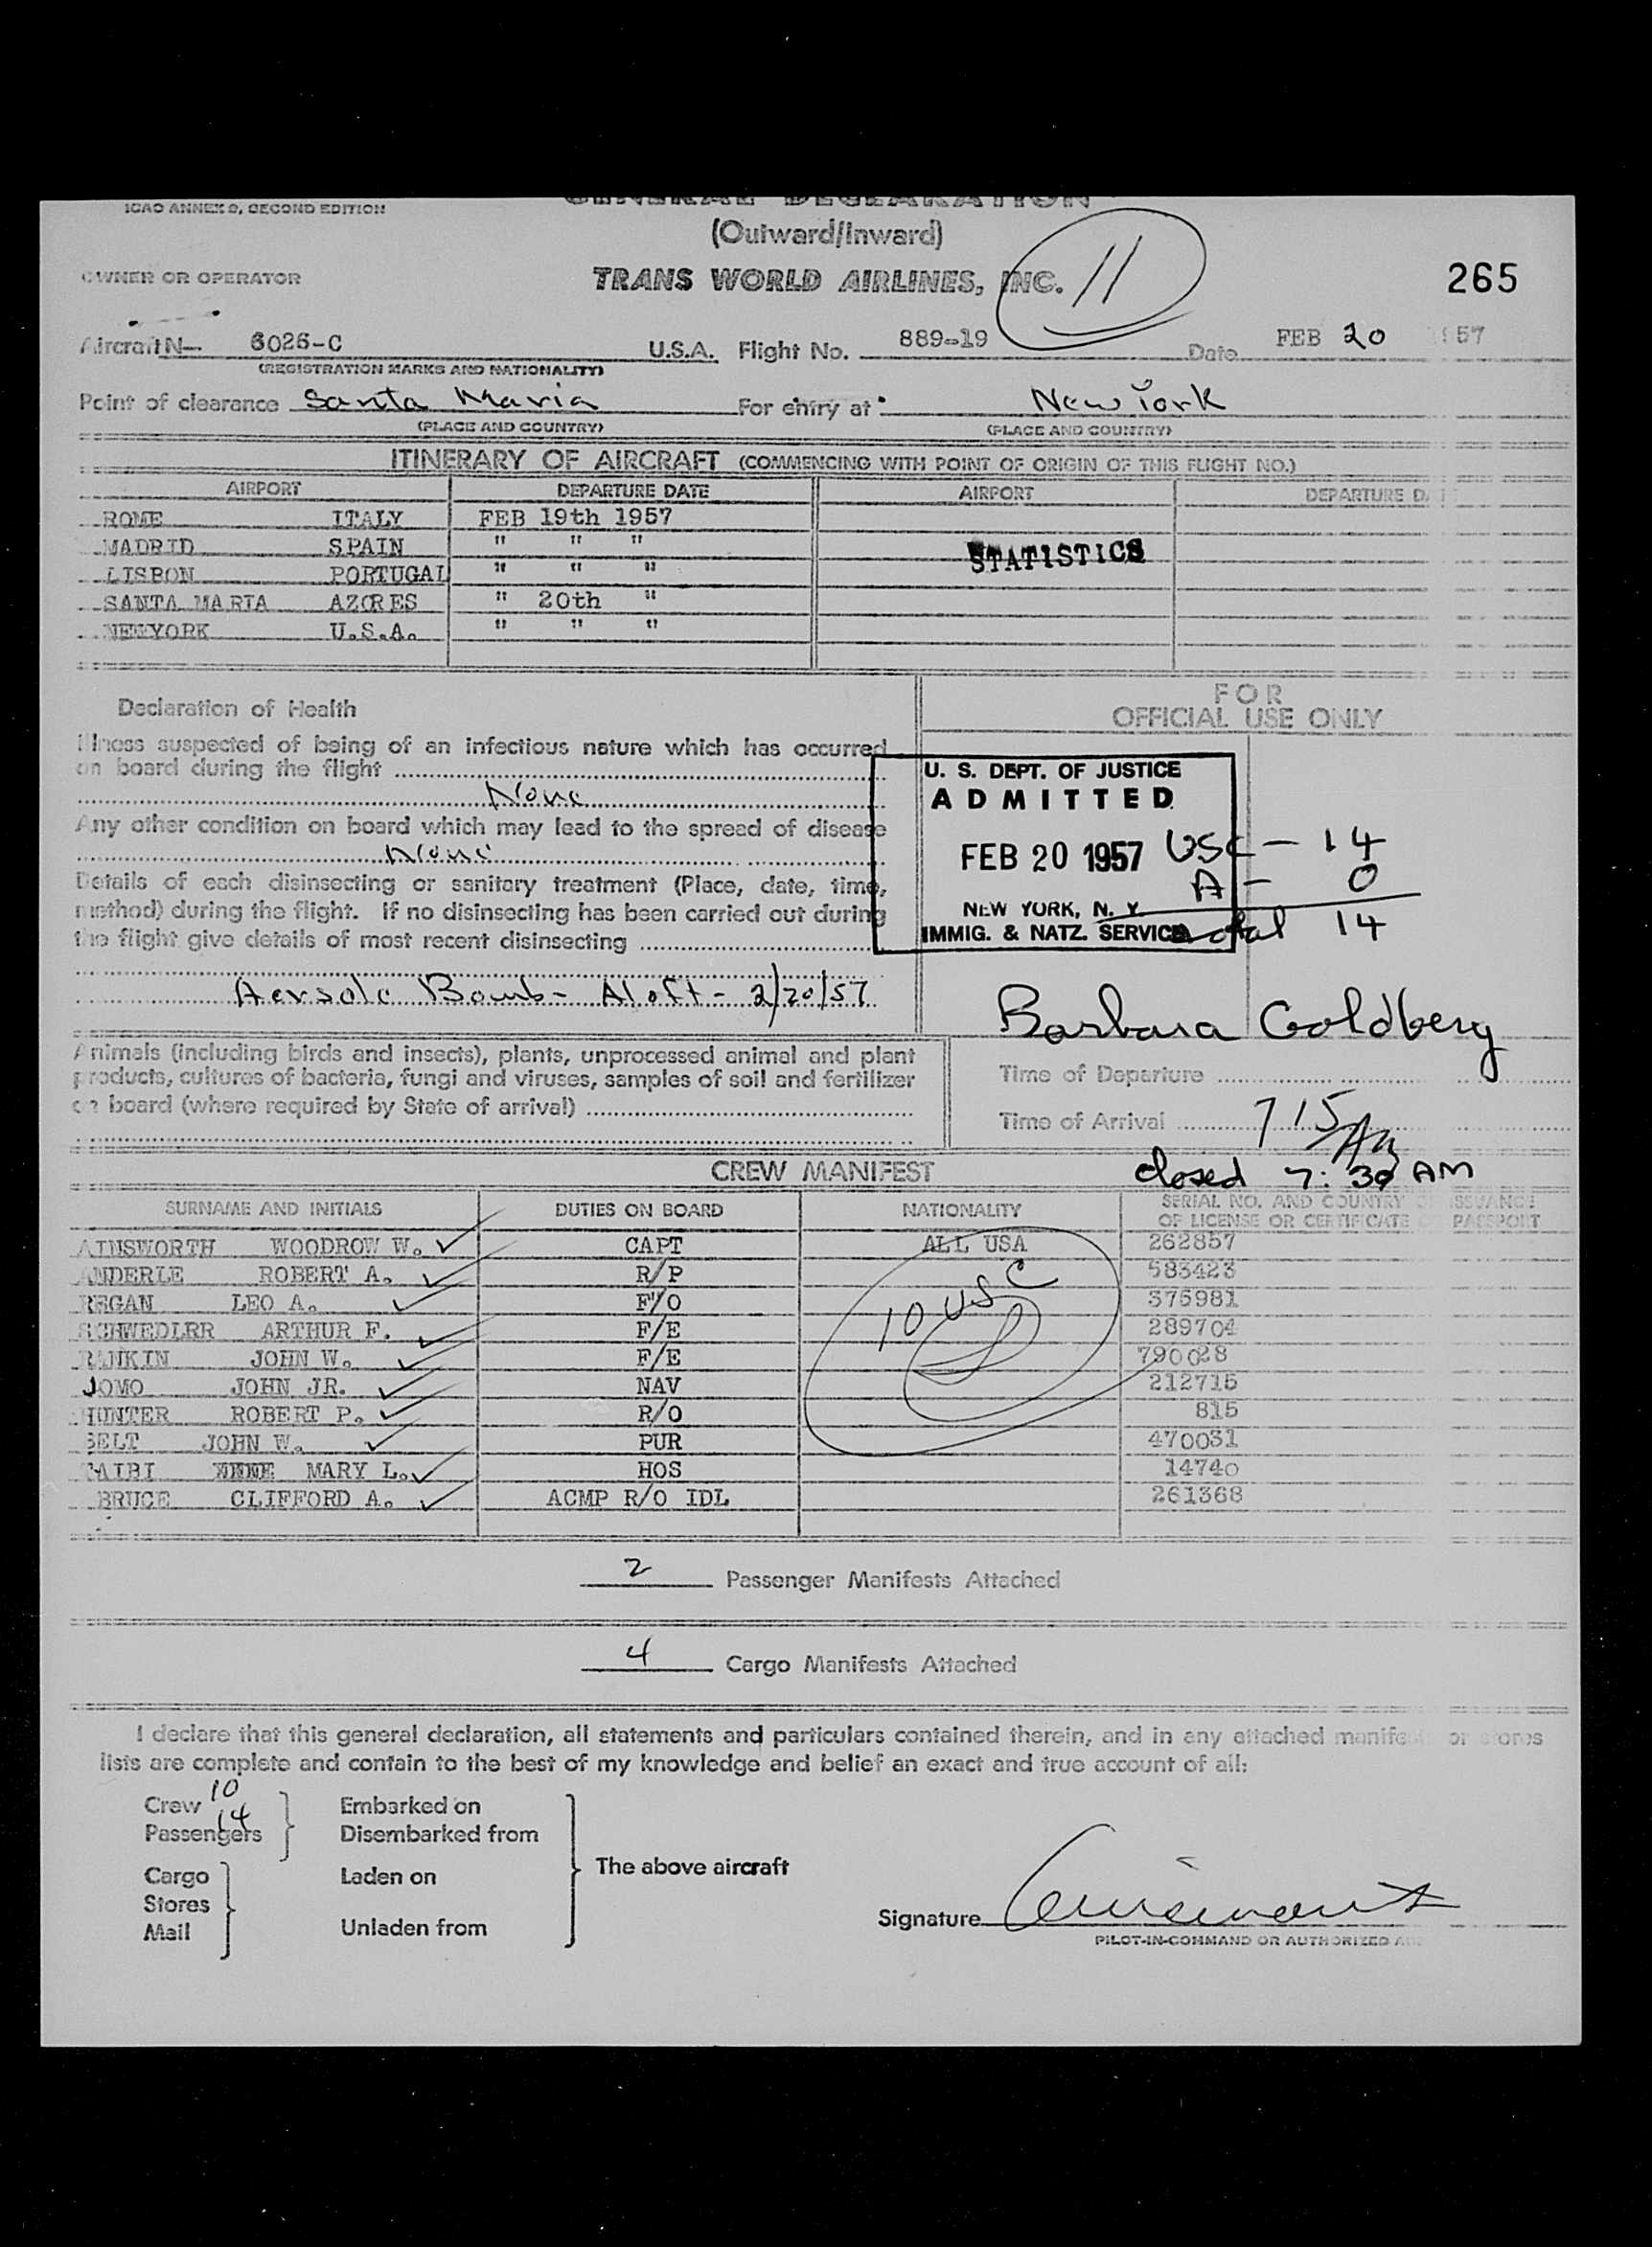 ICAO ANNEX 9, SECOND EDITION
GENERAL DECLARATION
(Outward/Inward)
OWNER OR OPERATOR TRANS WORLD AIRLINES, INC. 11 265
Aircraft N— 6026-C U.S.A. Flight No. 889-19 Date FEB 20 1957
(REGISTRATION MARKS AND NATIONALITY)
Point of clearance Santa Maria For entry at New York
(PLACE AND COUNTRY) (PLACE AND COUNTRY)
ITINERARY OF AIRCRAFT (COMMENCING WITH POINT OF ORIGIN OF THIS FLIGHT NO.)
AIRPORT DEPARTURE DATE AIRPORT DEPARTURE DA
ROME ITALY FEB 19th 1957
MADRID SPAIN " " " STATISTICS
LISBON PORTUGAL " " "
SANTA MARIA AZORES " 20th "
NEWYORK U.S.A. " " "
Declaration of Health
FOR
OFFICIAL USE ONLY
Illness suspected of being of an infectious nature which has occurred
on board during the flight
None
Any other condition on board which may lead to the spread of disease
None
Details of each disinsecting or sanitary treatment (Place, date, time,
method) during the flight. If no disinsecting has been carried out during
the flight give details of most recent disinsecting
Aersole Bomb - Aloft - 2/20/57
U. S. DEPT. OF JUSTICE
ADMITTED
FEB 20 1957
NEW YORK, N. Y.
IMMIG. & NATZ. SERVICE
USC - 14
A - 0
Total 14
Barbara Goldberg
Animals (including birds and insects), plants, unprocessed animal and plant
products, cultures of bacteria, fungi and viruses, samples of soil and fertilizer
on board (where required by State of arrival)
Time of Departure
Time of Arrival 715 AM
closed 7:30 AM
CREW MANIFEST
SURNAME AND INITIALS DUTIES ON BOARD NATIONALITY SERIAL NO. AND COUNTRY OF ISSUANCE
OF LICENSE OR CERTIFICATE OR PASSPORT
AINSWORTH WOODROW W. CAPT ALL USA 262857
ANDERLE ROBERT A. R/P 583423
REGAN LEO A. F/O 375981
SCHWEDLRR ARTHUR F. F/E 289704
RANKIN JOHN W. F/E 790028
JOMO JOHN JR. NAV 212715
HUNTER ROBERT P. R/O 815
BELT JOHN W. PUR 470031
TAIBI MARY L. HOS 14740
BRUCE CLIFFORD A. ACMP R/O IDL 261368
10 USC
2 Passenger Manifests Attached
4 Cargo Manifests Attached
I declare that this general declaration, all statements and particulars contained therein, and in any attached manifest or stores
lists are complete and contain to the best of my knowledge and belief an exact and true account of all:
Crew 10
Passengers 14
Embarked on
Disembarked from
Cargo
Stores
Mail
Laden on
Unladen from
The above aircraft
Signature
PILOT-IN-COMMAND OR AUTHORIZED